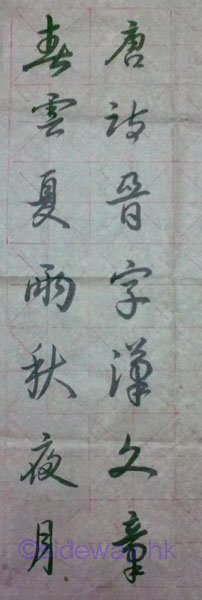 唐詩晉字漢文章
春雲夏雨秋夜月
©Sideway.hk